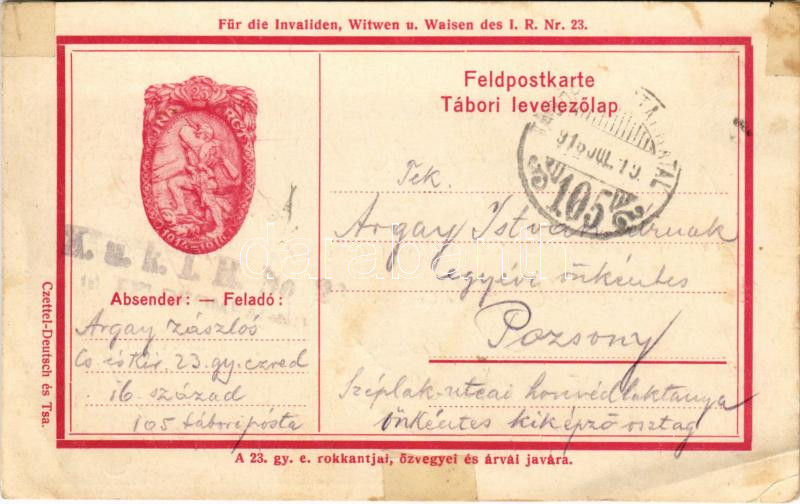 Für die Invaliden, Witwen u. Waisen des I. R. Nr. 23.
23
INF. RGT
1914-1916
Feldpostkarte
Tábori levelezőlap
916 JUL. 19.
105
Tek.
Argay István úrnak
egyévi önkéntes
Pozsony
Széplak-utcai honvédlaktanya
önkéntes kiképző osztag
K. u. k. I. R.
Absender: — Feladó:
Argay zászlós
Cs. és Kir. 23. gy. ezred
16. század
105 tábori pósta
Czettel-Deutsch és Tsa.
A 23. gy. e. rokkantjai, özvegyei és árvái javára.
darabanth